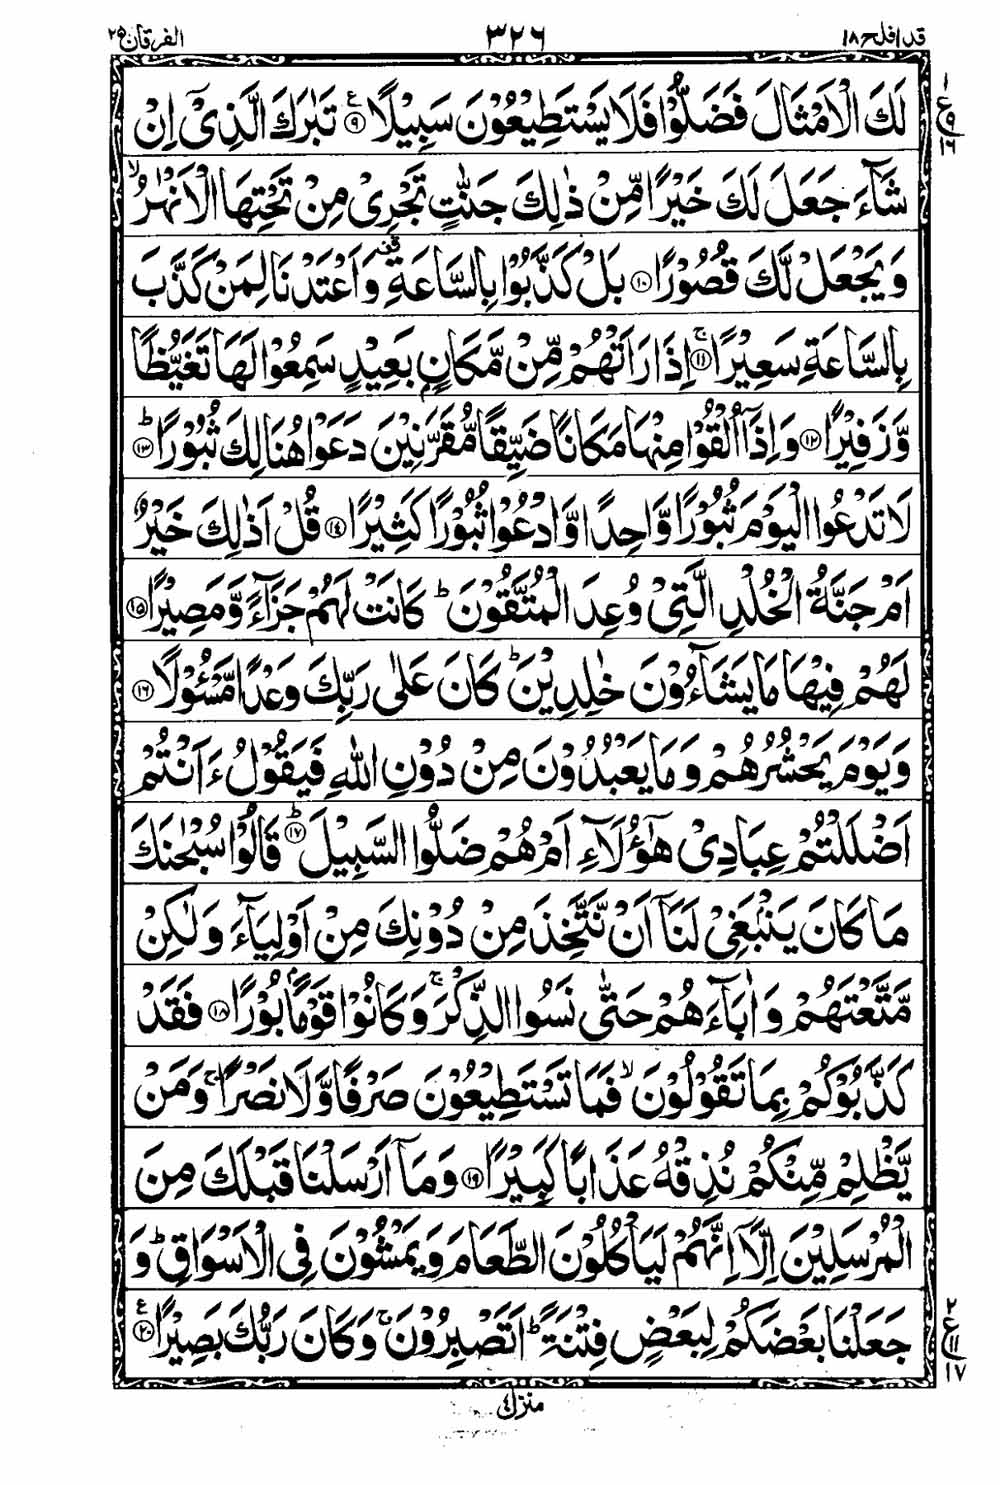 قد افلح ١٨
٣٢٦
الفرقان ٢٥
لَكَ الْاَمْثَالَ فَضَلُّوْا فَلَا يَسْتَطِيْعُوْنَ سَبِيْلًا ۹ۧ تَبٰرَكَ الَّذِيْٓ اِنْ
ع ١ ٩ ١٦
شَآءَ جَعَلَ لَكَ خَيْرًا مِّنْ ذٰلِكَ جَنّٰتٍ تَجْرِيْ مِنْ تَحْتِهَا الْاَنْهٰرُ ۙ
وَيَجْعَلْ لَّكَ قُصُوْرًا ۱۰ بَلْ كَذَّبُوْا بِالسَّاعَةِ ۣ وَاَعْتَدْنَا لِمَنْ كَذَّبَ
بِالسَّاعَةِ سَعِيْرًا ۱۱ۚ اِذَا رَاَتْهُمْ مِّنْ مَّكَانٍۭ بَعِيْدٍ سَمِعُوْا لَهَا تَغَيُّظًا
وَّزَفِيْرًا ۱۲ وَاِذَآ اُلْقُوْا مِنْهَا مَكَانًا ضَيِّقًا مُّقَرَّنِيْنَ دَعَوْا هُنَالِكَ ثُبُوْرًا ۱۳ؕ
لَا تَدْعُوا الْيَوْمَ ثُبُوْرًا وَّاحِدًا وَّادْعُوْا ثُبُوْرًا كَثِيْرًا ۱۴ قُلْ اَذٰلِكَ خَيْرٌ
اَمْ جَنَّةُ الْخُلْدِ الَّتِيْ وُعِدَ الْمُتَّقُوْنَ ؕ كَانَتْ لَهُمْ جَزَآءً وَّمَصِيْرًا ۱۵
لَهُمْ فِيْهَا مَا يَشَآءُوْنَ خٰلِدِيْنَ ؕ كَانَ عَلٰى رَبِّكَ وَعْدًا مَّسْئُوْلًا ۱۶
وَيَوْمَ يَحْشُرُهُمْ وَمَا يَعْبُدُوْنَ مِنْ دُوْنِ اللّٰهِ فَيَقُوْلُ ءَاَنْتُمْ
اَضْلَلْتُمْ عِبَادِيْ هٰٓؤُلَآءِ اَمْ هُمْ ضَلُّوا السَّبِيْلَ ۱۷ؕ قَالُوْا سُبْحٰنَكَ
مَا كَانَ يَنْۢبَغِيْ لَنَآ اَنْ نَّتَّخِذَ مِنْ دُوْنِكَ مِنْ اَوْلِيَآءَ وَلٰكِنْ
مَّتَّعْتَهُمْ وَاٰبَآءَهُمْ حَتّٰى نَسُوا الذِّكْرَ ۚ وَكَانُوْا قَوْمًۢا بُوْرًا ۱۸ فَقَدْ
كَذَّبُوْكُمْ بِمَا تَقُوْلُوْنَ ۙ فَمَا تَسْتَطِيْعُوْنَ صَرْفًا وَّلَا نَصْرًا ۚ وَمَنْ
يَّظْلِمْ مِّنْكُمْ نُذِقْهُ عَذَابًا كَبِيْرًا ۱۹ وَمَآ اَرْسَلْنَا قَبْلَكَ مِنَ
الْمُرْسَلِيْنَ اِلَّآ اِنَّهُمْ لَيَاْكُلُوْنَ الطَّعَامَ وَيَمْشُوْنَ فِي الْاَسْوَاقِ ؕ وَ
جَعَلْنَا بَعْضَكُمْ لِبَعْضٍ فِتْنَةً ؕ اَتَصْبِرُوْنَ ۚ وَكَانَ رَبُّكَ بَصِيْرًا ۲۰ۧ
ع ٢ ١١ ١٧
منزل ٤